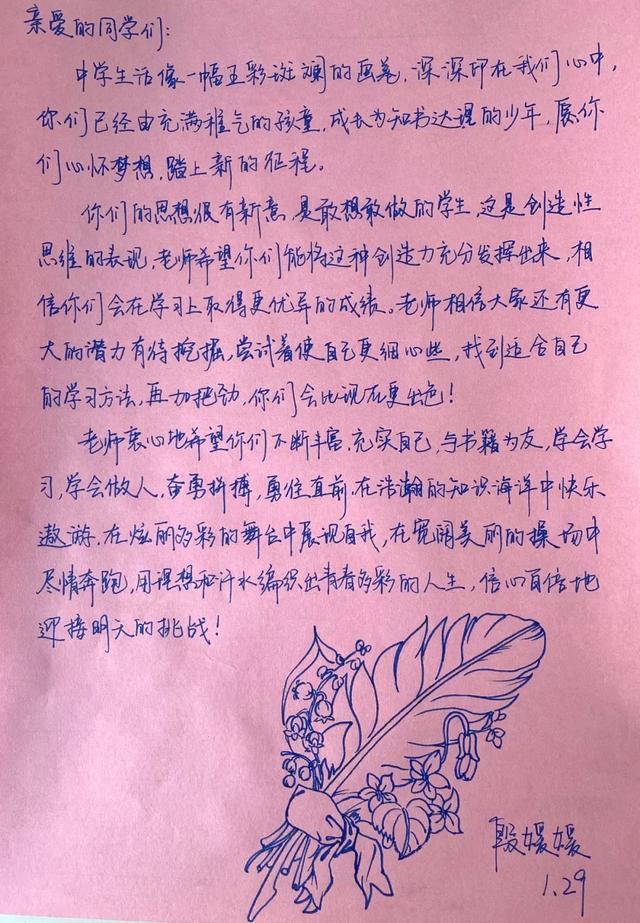 亲爱的同学们:
中学生活像一幅五彩斑斓的画卷,深深印在我们心中,
你们已经由充满稚气的孩童,成长为知书达理的少年,愿你
们心怀梦想,踏上新的征程。
你们的思想很有新意,是敢想敢做的学生,这是创造性
思维的表现,老师希望你们能将这种创造力充分发挥出来,相
信你们会在学习上取得更优异的成绩。老师相信大家还有更
大的潜力有待挖掘,尝试着使自己更细心些,找到适合自己
的学习方法,再加把劲,你们会比现在更出色!
老师衷心地希望你们不断丰富.充实自己,与书籍为友,学会学
习,学会做人,奋勇拼搏,勇往直前.在浩瀚的知识海洋中快乐
遨游.在炫丽多彩的舞台中展现自我,在宽阔美丽的操场中
尽情奔跑,用理想和汗水编织出青春多彩的人生,信心百倍地
迎接明天的挑战!
殷媛媛
1.29